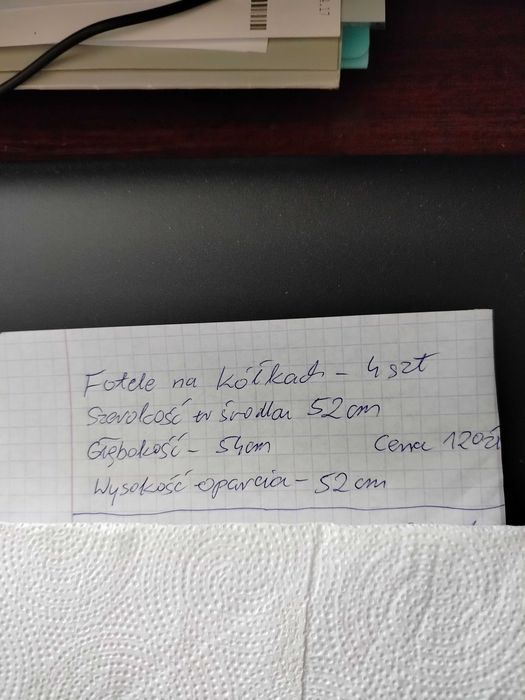 Fotele na kółkach - 4 szt
Szerokość w środku 52 cm
Głębokość - 54 cm Cena 120 zł
Wysokość oparcia - 52 cm